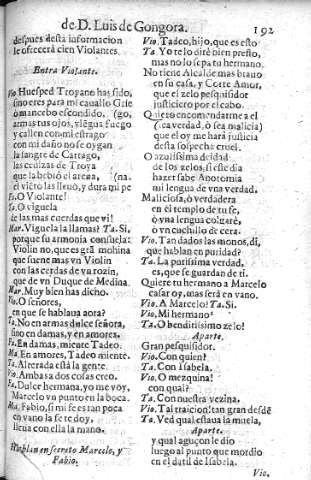 de D. Luis de Gongora.
192
despues desta informacion
le ofrecerà cien Violantes.
Entra Violante.
Vio. Huesped Troyano has sido,
sino eres para mi cauallo Grie
ò mancebo escondido, (go,
armas tus ojos, y
fuego
y callen con mi estrago
con mi daño no se oygan
la sangre de Cartago,
las cenizas de Troya
que la bebiò el arena, (na
el viẽto las lleuò, y dura mi pe
Fa. O Violante!
Ta. O viguela
de las mas cuerdas que vi!
Mar. Viguela la llamas? Ta. Si,
porque su armonia consuela:
Violin no, que es grã mohina
que suene mas vn Violin
con las cerdas de vn rozin,
que de vn Duque de Medina.
Mar. Muy bien has dicho.
Vio. O señores,
en que se hablaua aora?
Ta. No en armas dulce señora,
sino en damas, y en amores.
Fa. En damas, miente Tadeo.
Ma. En amores, Tadeo miente.
Ta. Alterada està la gente.
Vio. Ambas a dos cosas creo.
Fa. Dulce hermana, yo me voy,
Marcelo vn punto en la boca.
Ma. Fabio, si mi fe es tan poca
en vano la se te doy,
lleua con ella la mano.
Hablan en secreto Marcelo, y
Fabio.
Vio. Tadeo, hijo, que es esto
Ta. Yo te lo dirè bien presto,
mas no lo sepa tu hermano.
No tiene Alcalde mas brauo
en su casa, y Corte Amor,
que el zelo pesquisidor
justiciero por el cabo.
Quiero encomendarme a el
(sea verdad, ò sea malicia)
que el oy me harà justicia
desta sospecha cruel.
O azulissima deidad
de los zelos, si este dia
hazer sabe Anotomia
mi lengua de vna verdad.
Maliciosa, ò verdadera
en el templo de tu fe,
ò vna lengua colgarè,
ò vn cuchillo de cera.
Vio. Tan dados las monos, di,
que hablan en puridad?
Ta. La purissima verdad,
es, que se guardan de ti.
Quiere tu hermano a Marcelo
casar oy, mas serà en vano.
Vio. A Marcelo? Ta. Si.
Vio. Mi hermano?
Ta. O benditissimo zelo!
Aparte.
Gran pesquisidor.
Vio. Con quien?
Ta. Con Isabela.
Vio. O mezquina!
con qual?
Ta. Con nuestra vezina.
Vio. Tal traicion! tan gran desdẽ
Ta. Ved qual estaua la muela,
Aparte.
y qual aguçon le dio
luego al punto que mordio
en el datil de Isabela.
Vio.